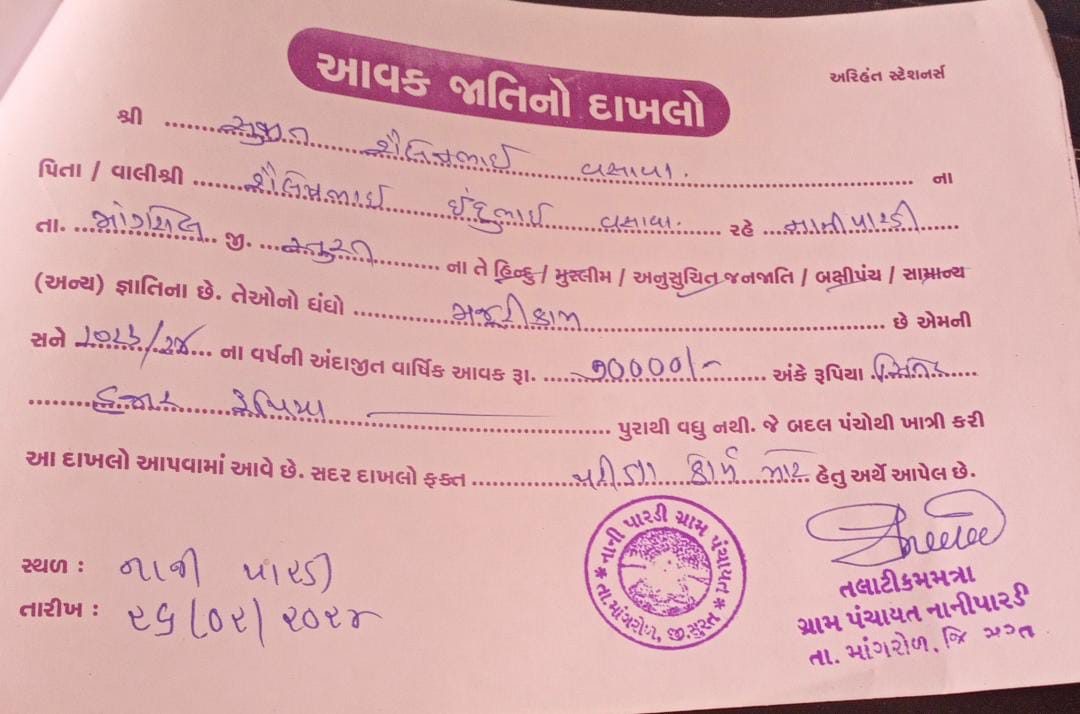 આવક જાતિનો દાખલો
અરિહંત સ્ટેશનર્સ
શ્રી સુજીત શૈલેષભાઈ વસાવા. ના
પિતા / વાલીશ્રી શૈલેષભાઈ ઇંદુભાઈ વસાવા. રહે નાનીપારડી
તા. માંગરોલ જી. સુરત ના તે હિન્દુ / મુસ્લીમ / અનુસુચિત જનજાતિ / બક્ષીપંચ / સામાન્ય
(અન્ય) જ્ઞાતિના છે. તેઓનો ધંધો મજૂરીકામ છે એમની
સને ૨૦૨૩/૨૪ ના વર્ષની અંદાજીત વાર્ષિક આવક રૂા. ૭૦૦૦૦/- અંકે રૂપિયા સિત્તેર
હજાર રૂપિયા પુરાથી વધુ નથી. જે બદલ પંચોથી ખાત્રી કરી
આ દાખલો આપવામાં આવે છે. સદર દાખલો ફક્ત પરીક્ષા ફોર્મ માટે હેતુ અર્થે આપેલ છે.
સ્થળ : નાની પારડી
તારીખ : ૨૬/૦૨/૨૦૨૪
* નાની પારડી ગ્રામ પંચાયત * તા.માંગરોળ, જી.સુરત
તલાટીકમમત્રા
ગ્રામ પંચાયત નાનીપારડી
તા. માંગરોળ. જિ સુરત